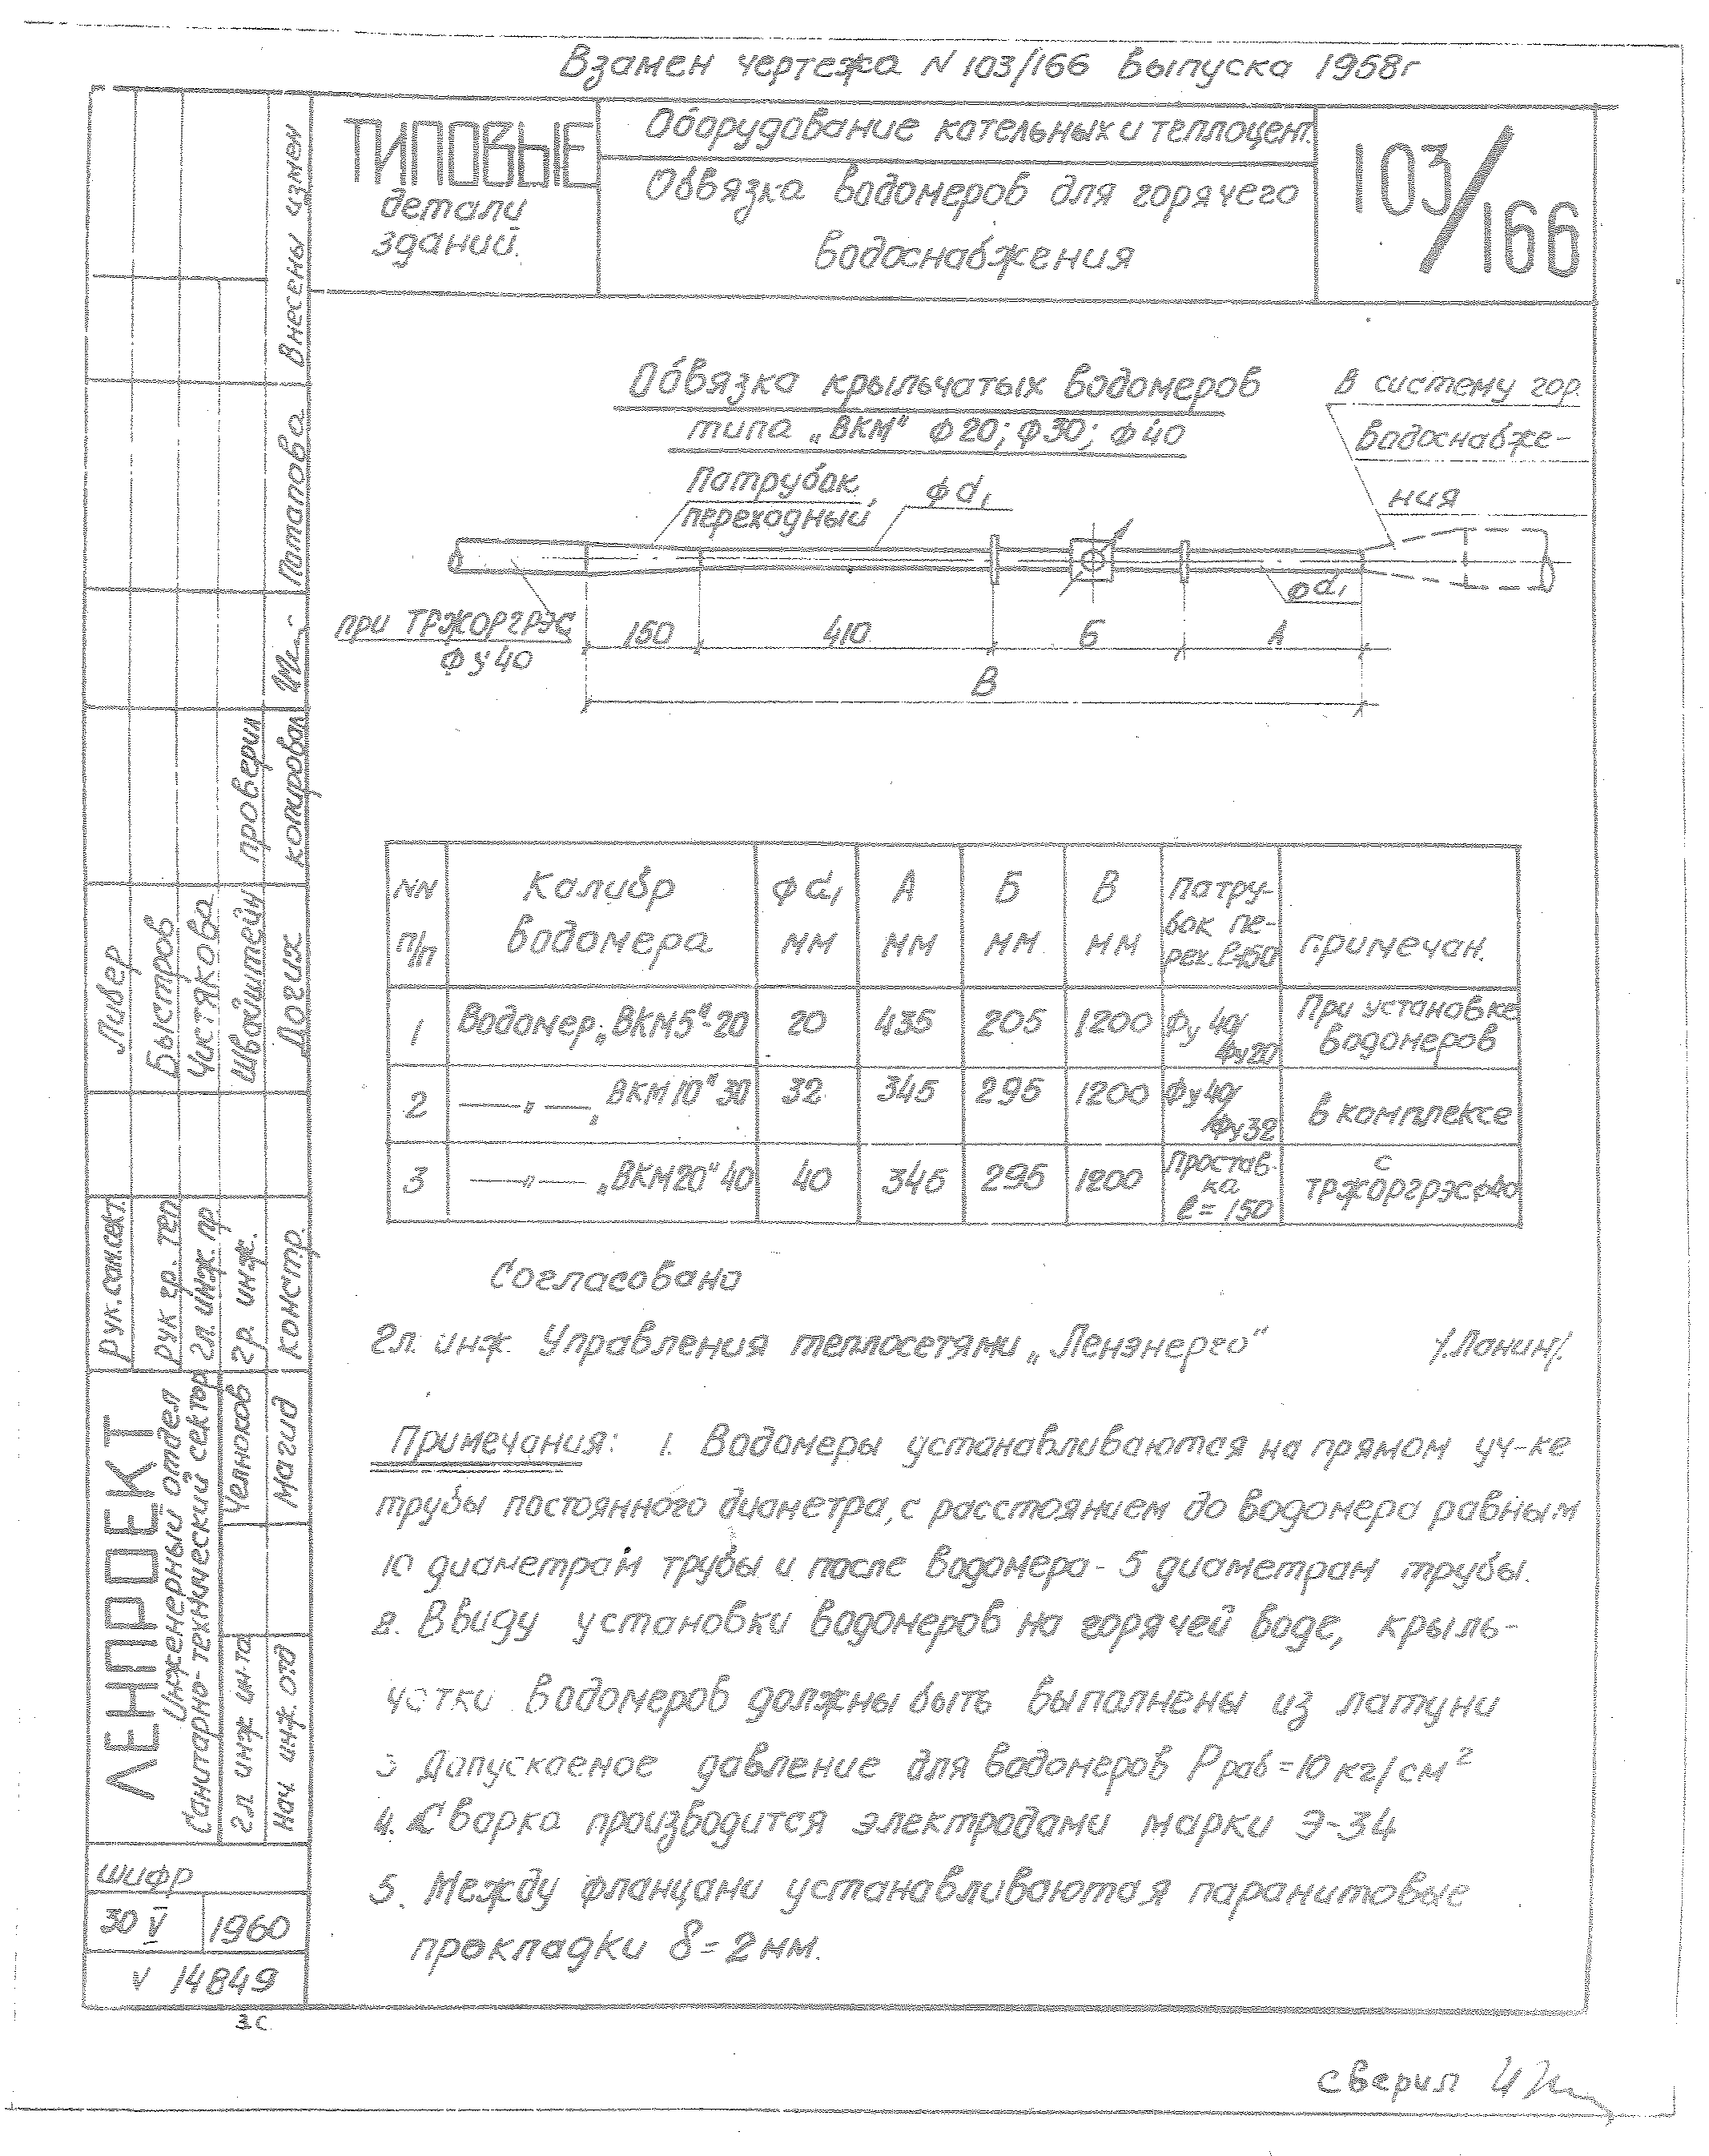 Взамен чертежа N 103/166 выпуска 1958г
ТИПОВЫЕ
детали
зданий.
Оборудование котельных и теплоцент.
Обвязка водомеров для горячего
водоснабжения
103/166
Обвязка крыльчатых водомеров
типа „ВКМ" ф20; ф30; ф40
В систему гор.
водоснабже-
ния
Патрубок
переходный
ф d₁
ф d₁
при ТРЖОРГРЭС
Фу40
150
410
Б
А
В
NN п/п
Калибр водомера
ф d₁ мм
А мм
Б мм
В мм
Патру-
бок пе-
рех. ℓ=150
примечан.
1 Водомер „ВКМ5"-20 20 435 205 1200 Фу 40/Фу20 При установке водомеров
2 —„— „ВКМ10"30 32 345 295 1200 Фу40/Фу32 в комплексе
3 —„— „ВКМ20"40 40 345 295 1200 Простав-ка ℓ=150 с ТРЖОРГРЭСф40
Согласовано
Гл. инж. Управления теплосетями „Ленэнерго" /.Ланин/.
Примечания: 1. Водомеры устанавливаются на прямом уч-ке
трубы постоянного диаметра, с расстоянием до водомера равным
10 диаметрам трубы и после водомера - 5 диаметрам трубы.
2. Ввиду установки водомеров на горячей воде, крыль-
чатки водомеров должны быть выполнены из латуни
3 Допускаемое давление для водомеров Рраб=10 кг/см²
4. Сварка производится электродами марки Э-34
5. Между фланцами устанавливаются паранитовые
прокладки δ=2мм.
Внесены измен
Потапова
проверил
копировал
Ливер
Быстров
Чистякова
Швайштейн
Догих
Рук. сан. сект.
Рук гр. теп
Гл. инж. пр
Гр. инж.
Констр.
ЛЕНПРОЕКТ
Инженерный отдел
Санитарно-технический сектор
Челноков
Магид
Гл инж ин-та
Нач. инж. отд
шифр
30 V 1960
V 14849
3С
сверил